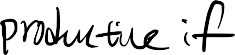 productive if